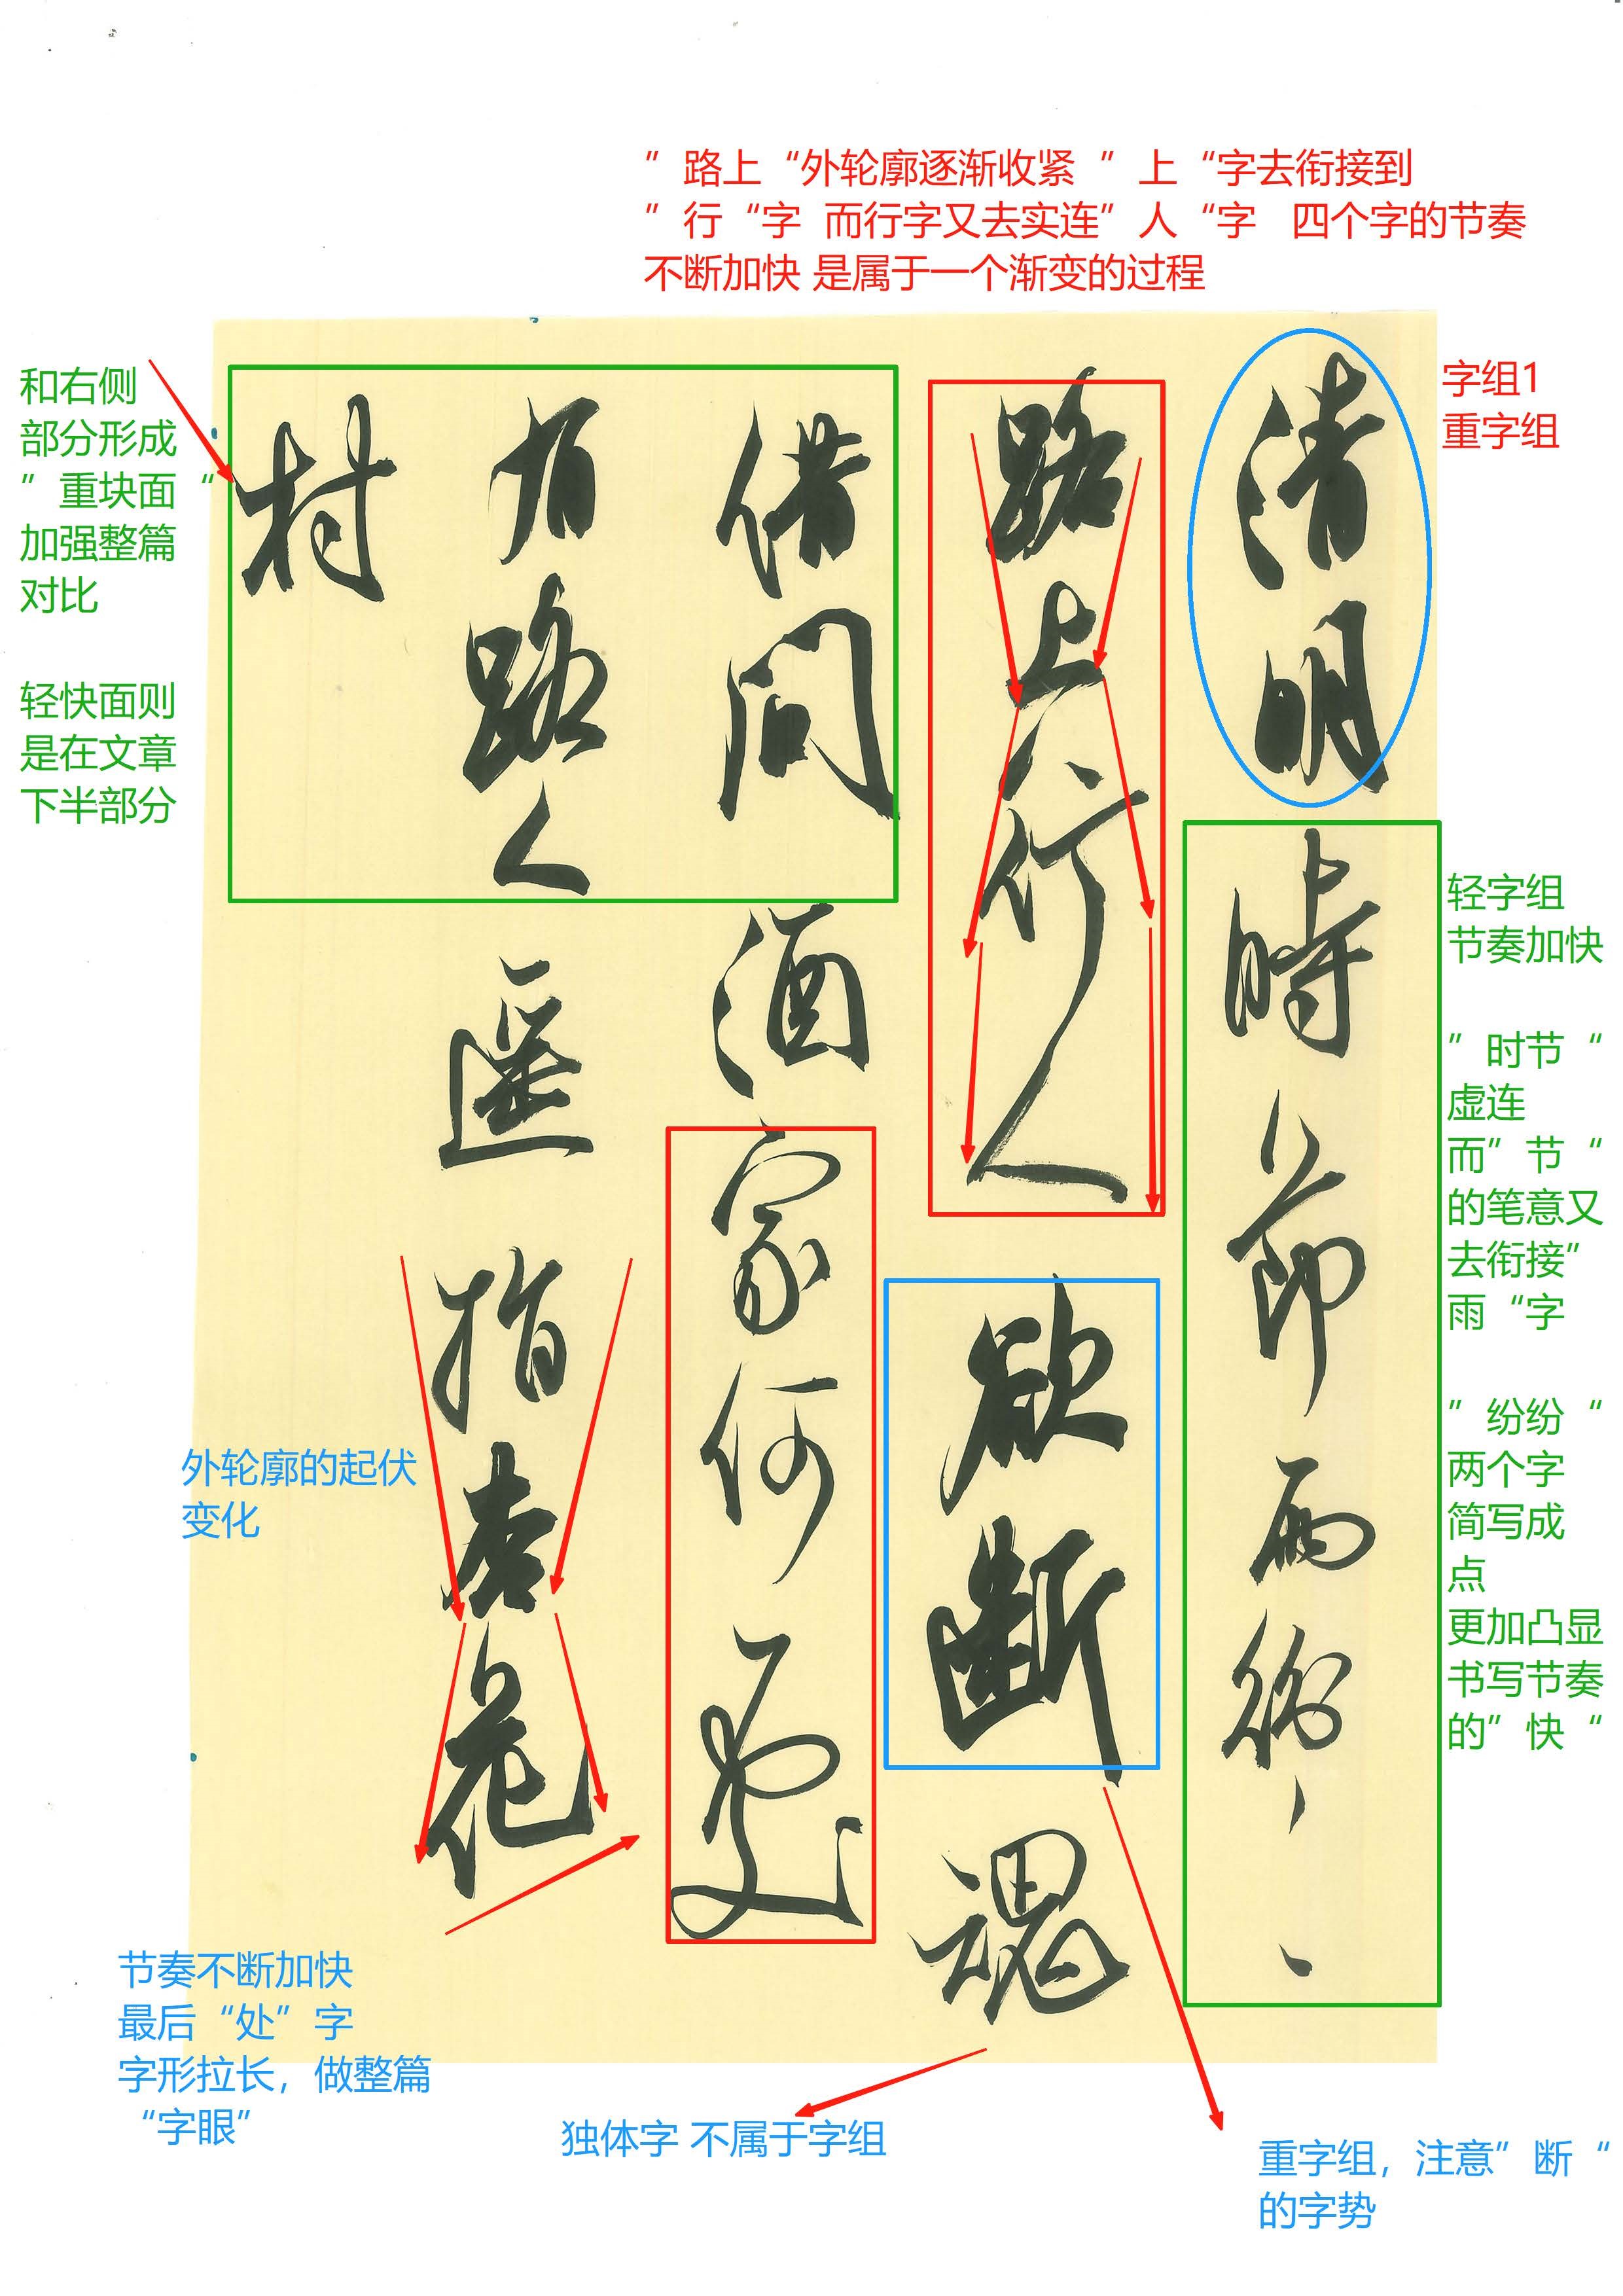 ”路上“外轮廓逐渐收紧 ”上“字去衔接到
”行“字 而行字又去实连”人“字 四个字的节奏
不断加快 是属于一个渐变的过程
字组1
重字组
轻字组
节奏加快
”时节“
虚连
而”节“
的笔意又
去衔接”
雨“字
”纷纷“
两个字
简写成
点
更加凸显
书写节奏
的”快“
清明時節雨紛、、
路上行人欲断魂
借問酒家何處
有路人遥指杏花
村
和右侧
部分形成
”重块面“
加强整篇
对比
轻快面则
是在文章
下半部分
外轮廓的起伏
变化
节奏不断加快
最后“处”字
字形拉长，做整篇
“字眼”
独体字 不属于字组
重字组，注意”断“
的字势